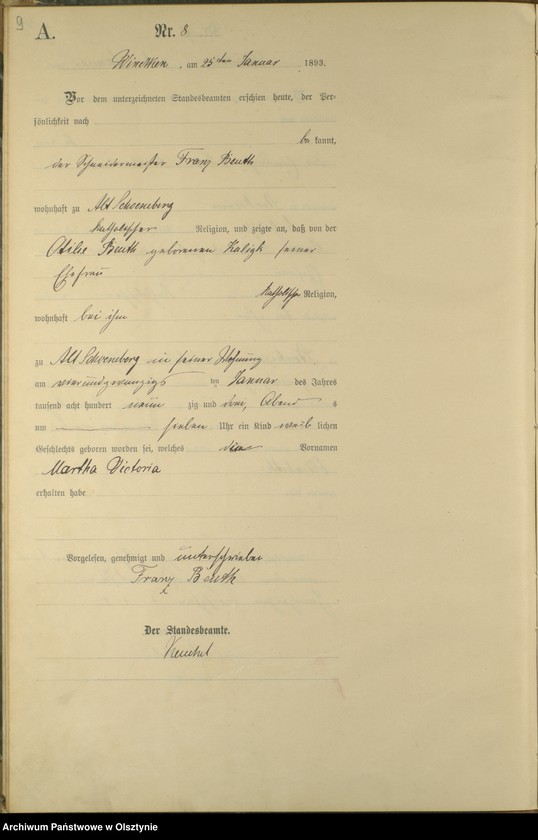 9
A.
Nr. 8.
am 25ten Januar 1893.
Vor dem unterzeichneten Standesbeamten erschien heute, der Per-
sönlichkeit nach
be kannt,
der Schneidermeister Franz Beuth
wohnhaft zu Alt Schoeneberg
katholischer Religion, und zeigte an, daß von der
Otilie Beuth geborenen Kaligk seiner
Ehefrau
katholischer Religion,
wohnhaft bei ihm
zu Alt Schoeneberg in seiner Wohnung
am vierundzwanzigs ten Januar des Jahres
tausend acht hundert neun zig und drei, Abend s
um sieben Uhr ein Kind weib lichen
Geschlechts geboren worden sei, welches die Vornamen
Martha Victoria
erhalten habe
Vorgelesen, genehmigt und unterschrieben
Franz Beuth
Der Standesbeamte.
Archiwum Państwowe w Olsztynie